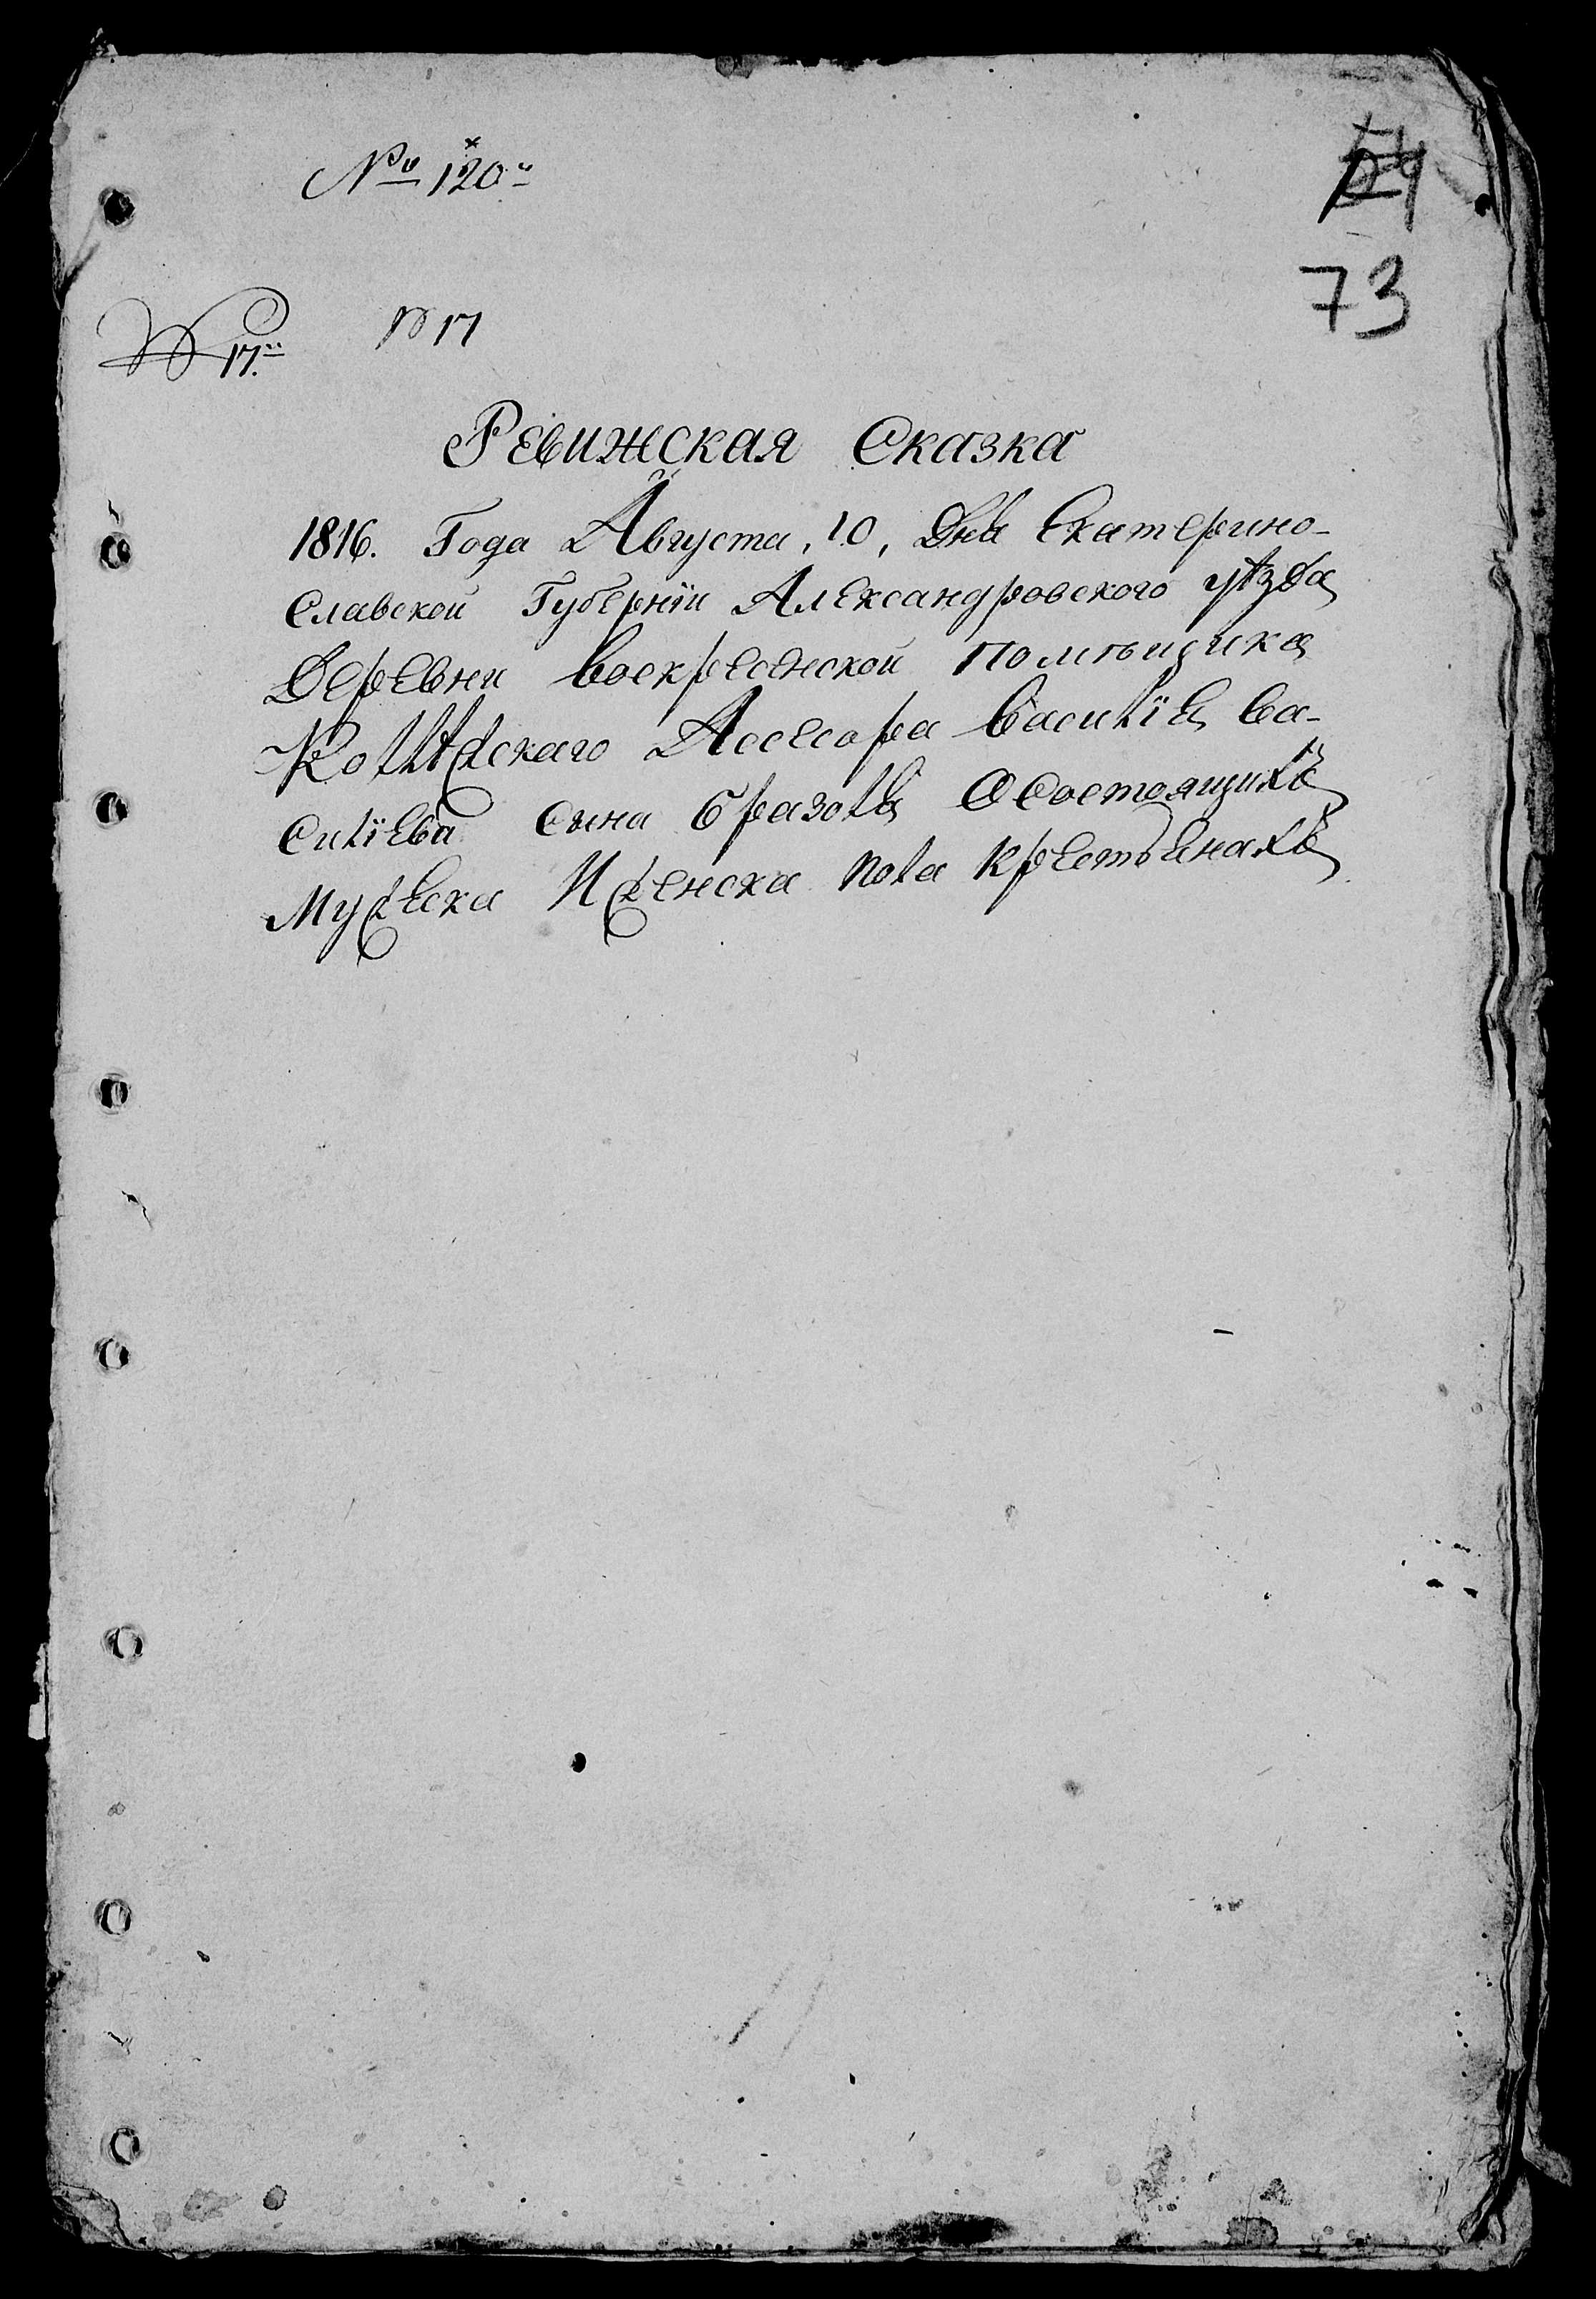 № 120
73
№ 17
№ 17
Ревижская Сказка
1816. Года Августа, 10, Дня Екатерино-
славской Губернїи Александровского уѣзда
Деревни Воскресенской Помѣщика
Коллѣжскаго Ассесора Василїя Ва-
силїева сына Бразоля О Состоящихъ
Мужеска И женска пола крестьянахъ